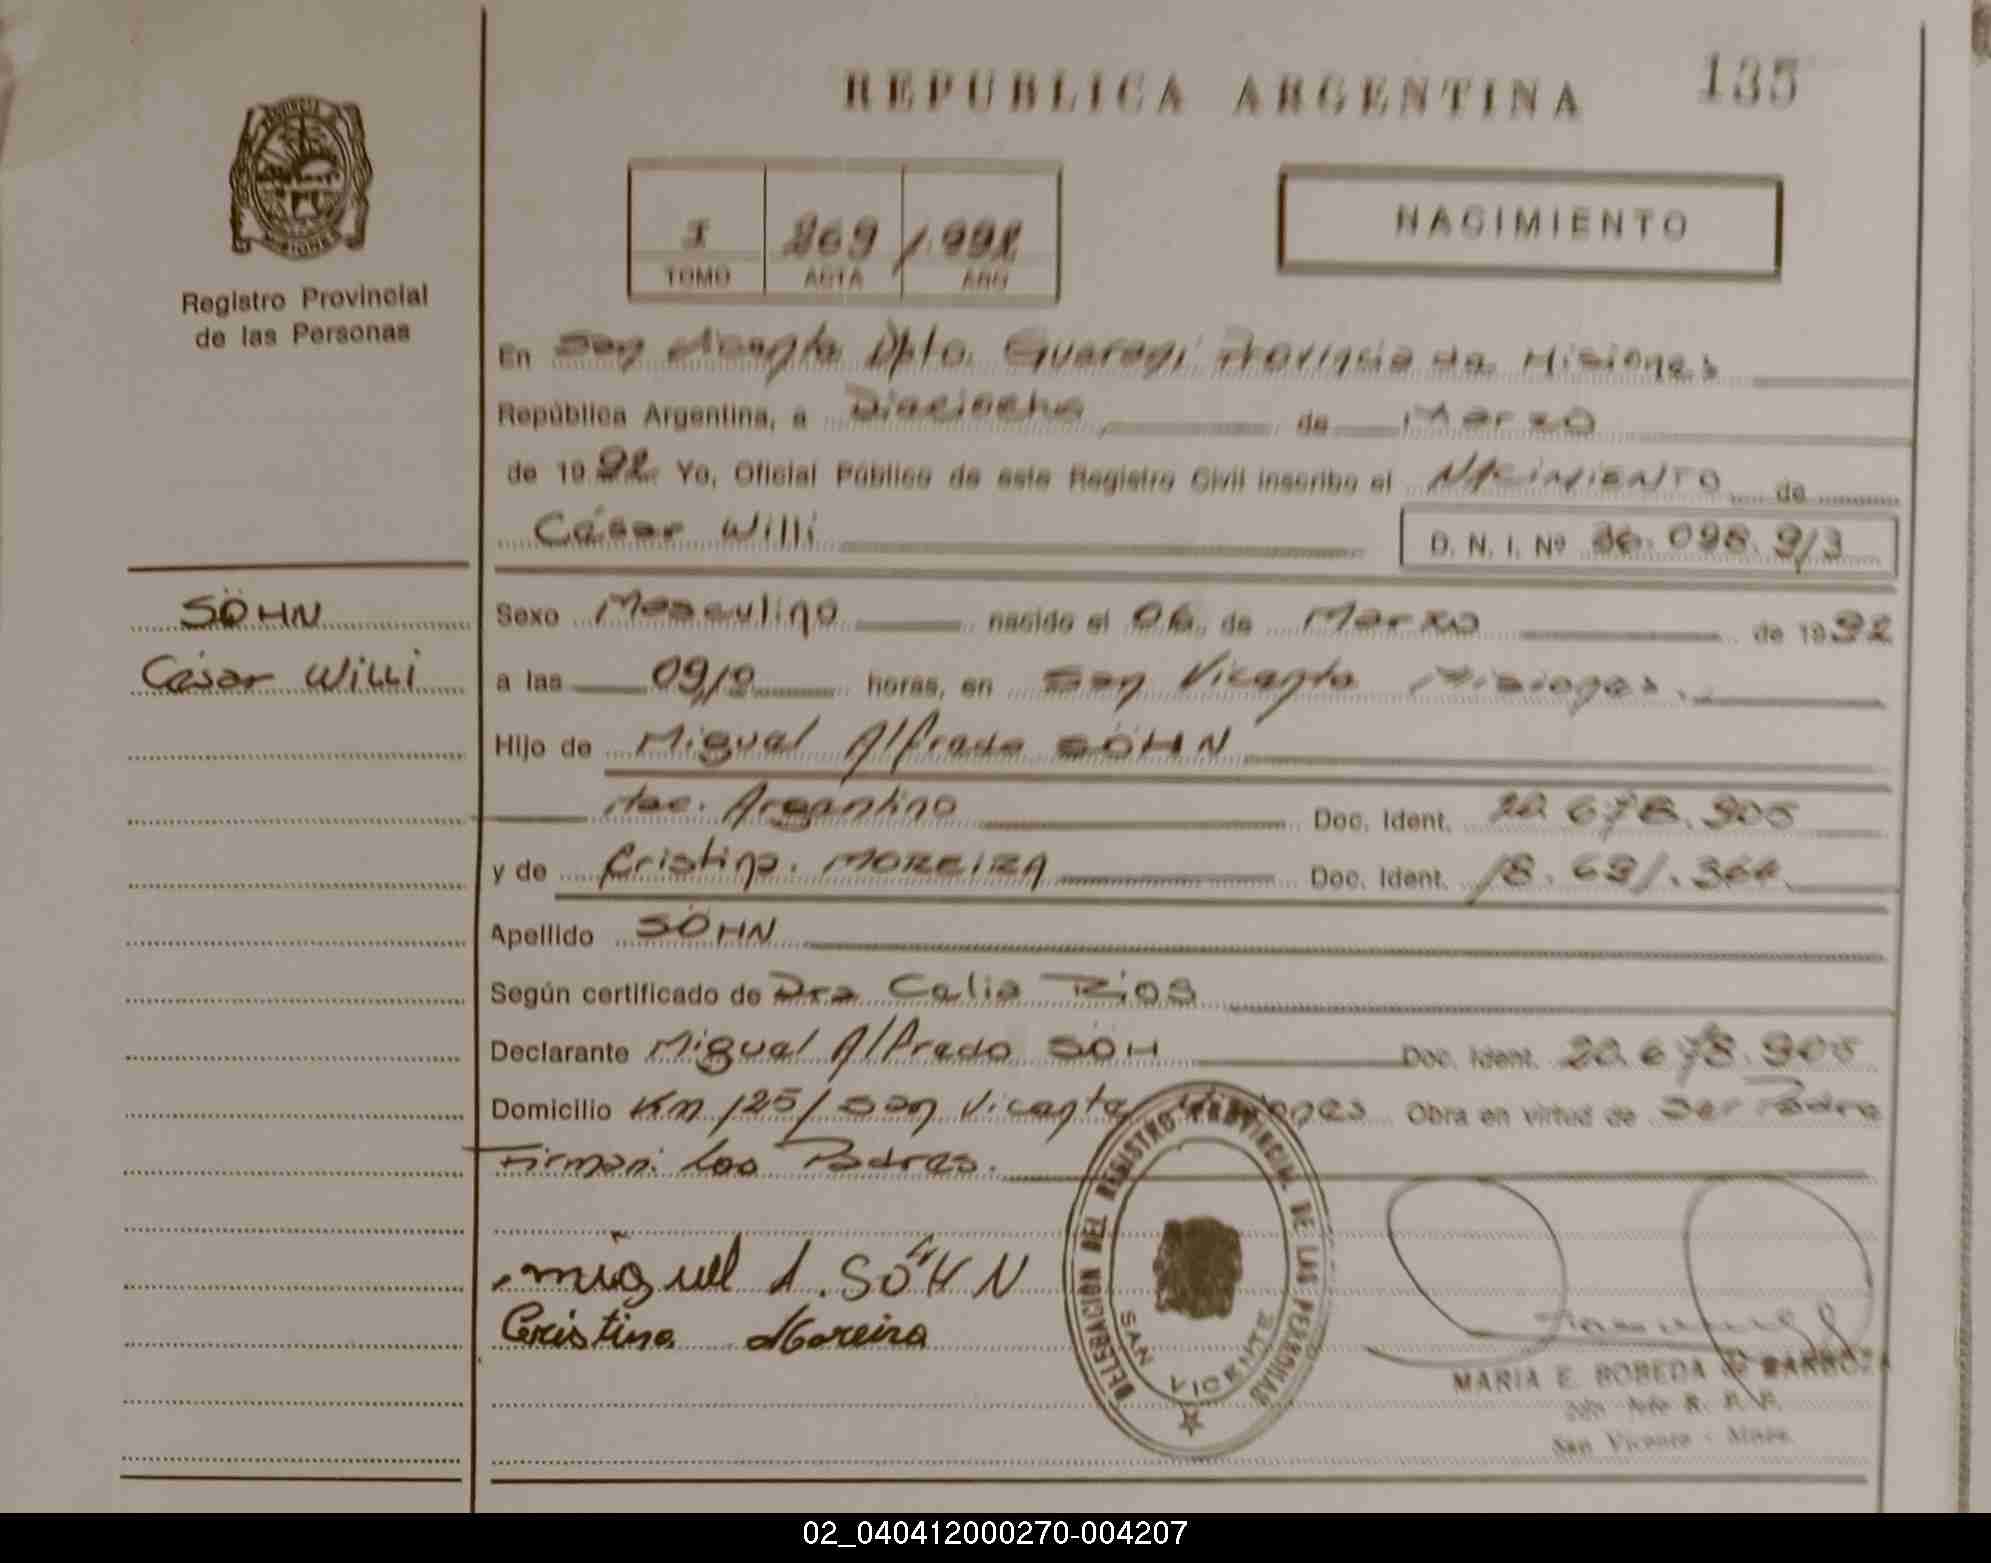 REPUBLICA ARGENTINA
135
Registro Provincial
de las Personas
I 269 1.992
TOMO ACTA AÑO
NACIMIENTO
En San Vicente Dpto. Guaraní Provincia de Misiones
República Argentina, a Dieciocho de Marzo
de 1992 Yo, Oficial Público de este Registro Civil inscribo el NACIMIENTO de
César Willi D. N. I. Nº 36.098.913
SÖHN
César Willi
Sexo Masculino nacido el 06 de Marzo de 1992
a las 09/0 horas, en San Vicente Misiones.
Hijo de Miguel Alfredo SÖHN
Nac. Argentino Doc. Ident. 20.678.905
y de Cristina. MOREIRA Doc. Ident. 18.691.
Apellido SÖHN
Según certificado de Dra Celia Rios
Declarante Miguel Alfredo SÖH Doc. Ident. 20.678.905
Domicilio Km 1251 San Vicente Misiones Obra en virtud de Ser Padre
Firman: Los Padres.
miguel A. SÖHN
Cristina Moreira
DELEGACION DEL REGISTRO PROVINCIAL DE LAS PERSONAS
SAN VICENTE
MARIA E. BOBEDA D BARBOZA
R. P. P.
San Vicente - Mnes.
02_040412000270-004207